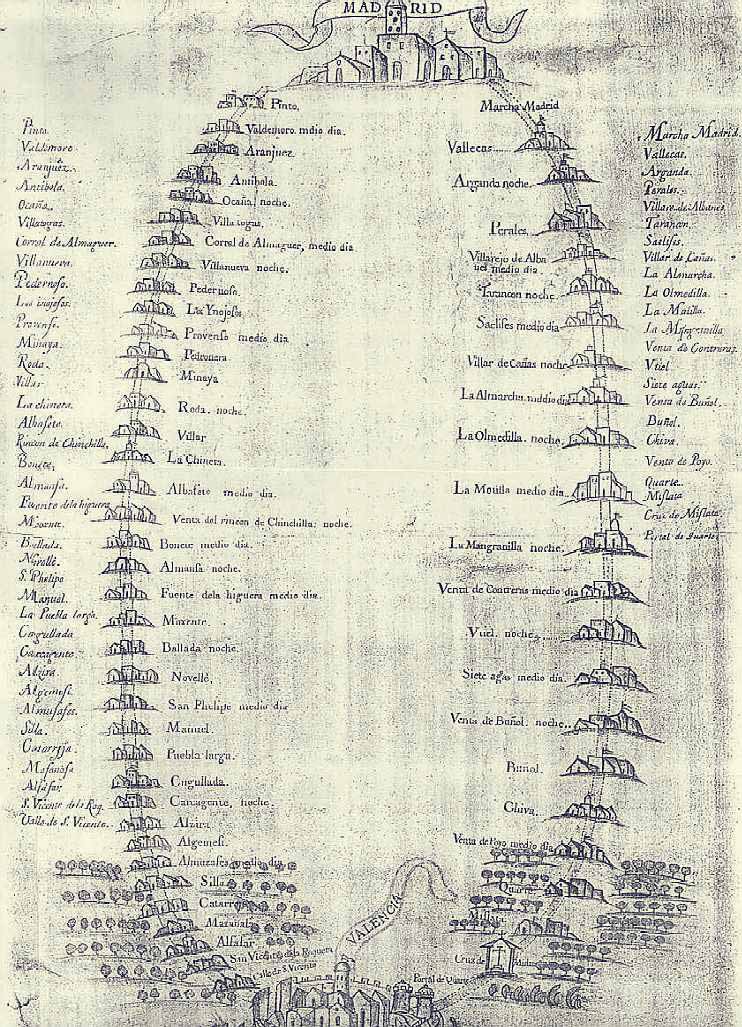 MADRID
Pinto.
Valdemoro.
Aranjuez.
Antihola.
Ocaña.
Villatogas.
Corral de Almaguer.
Villanueva.
Pedernoso.
Provenso.
Minaya.
Roda.
Villar
La chineta.
Albasete.
Rincon de Chinchilla,
Bonete,
Almansa.
Fuente dela higuera
Moxente.
Ballada.
Novelle.
S. Phelipo
Manuel.
La Puebla larga.
Cogullada
Carcagente.
Alzira.
Algemesi.
Almusafes.
Silla.
Catarrija.
Masanasa
Alfafar
S. Vicente dela Roq.
Calle de S. Vicente.
Pinto.
Valdemoro. mdio dia.
Aranjuez
Antihola
Ocaña, noche.
Villa togas.
Corral de Almaguer, medio dia
Villanueva noche.
Pedernoso.
Las Ynojosas
Provenso medio dia
Pedronera
Minaya
Roda. noche.
Villar
La Chineta.
Albasete medio dia.
Venta del rincon de Chinchilla. noche.
Bonete medio dia.
Almansa noche.
Fuente dela higuera medio dia.
Moxente.
Ballada noche.
Novellè,
San Phelipe medio dia
Manuel.
Puebla larga.
Cugullada.
Carcagente, noche.
Alzira
Algemesi.
Almuzafes medio dia
Silla
Catarroja
Masanasa
Alfafar
San Vicente dela Roqueta
Calle de S. Vicente
Marcha Madrid
Vallecas
Arganda noche.
Perales.
Villarejo de Alba
nel medio dia
Tarancon noche.
Saelises medio dia
Villar de Cañas noche
La Almarcha. medio dia
La Olmedilla. noche.
La Motilla medio dia.
La Mangranilla noche.
Venta de Contreras medio dia
Vtiel. noche
Siete agas medio dia.
Venta de Buñol. noche.
Buñol.
Chiva.
Venta de Poyo medio dia
Quarte
Mislata
Cruz de Mislata
Portal de Quarte
VALENCIA
Marcha Madrid.
Vallecas.
Arganda.
Perales.
Tarancon.
Saelises.
Villar de Cañas.
La Almarcha.
La Olmedilla.
La Motilla.
Venta de Contreras.
Vtiel
Siete aguas.
Venta de Buñol.
Buñol.
Chiva.
Venta de Poyo.
Quarte.
Mislata
Cruz de Mislata.
Portal de Quarte.